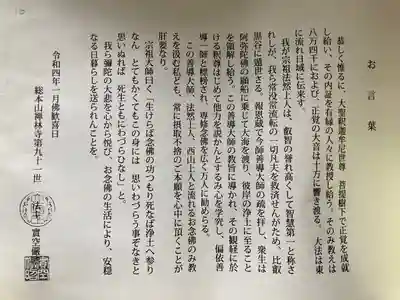 お言葉
恭しく惟るに、大聖釈迦牟尼世尊 菩提樹下で正覚を成就
し給い、その内証を有縁の人々に教授し給う。そのみ教えは
八万四千におよび、正覚の大音は十方に響き渡る。大法は東
に流れ日域に伝来す。
我が宗祖法然上人は、叡智の誉れ高くして智慧第一と称さ
れしが、我ら常没常流転の一切凡夫を救済せんがため、比叡
黒谷に遁世さる。報恩蔵で今師善導大師の疏を拝し、衆生は
阿弥陀佛の願船に乗じて大海を渡り、彼岸の浄土に至ること
を領解し給う。この善導大師の教旨に導かれ、その観経に於
ける釈尊はじめて他力を説かんとするみ心を学究し、偏依善
導一師と標榜され、専修念佛を広く万人に勧めらる。
この善導大師、法然上人、西山上人と流れるお念佛のみ教
えを汲む私ども、常に摂取不捨のご本願を心中に頂くことが
肝要なり。
宗祖大師曰く「生けらば念佛の功つもり死なば浄土へ参り
なん とてもかくてもこの身には 思いわづらう事ぞなきと
思いぬれば 死生ともにわづらひなし」と。
我ら弥陀の大悲を心から悦び、お念佛の生活により、安穏
なる日暮らしを送られんことを。
令和四年一月佛歓喜日
総本山禅林寺第九十一世
法主